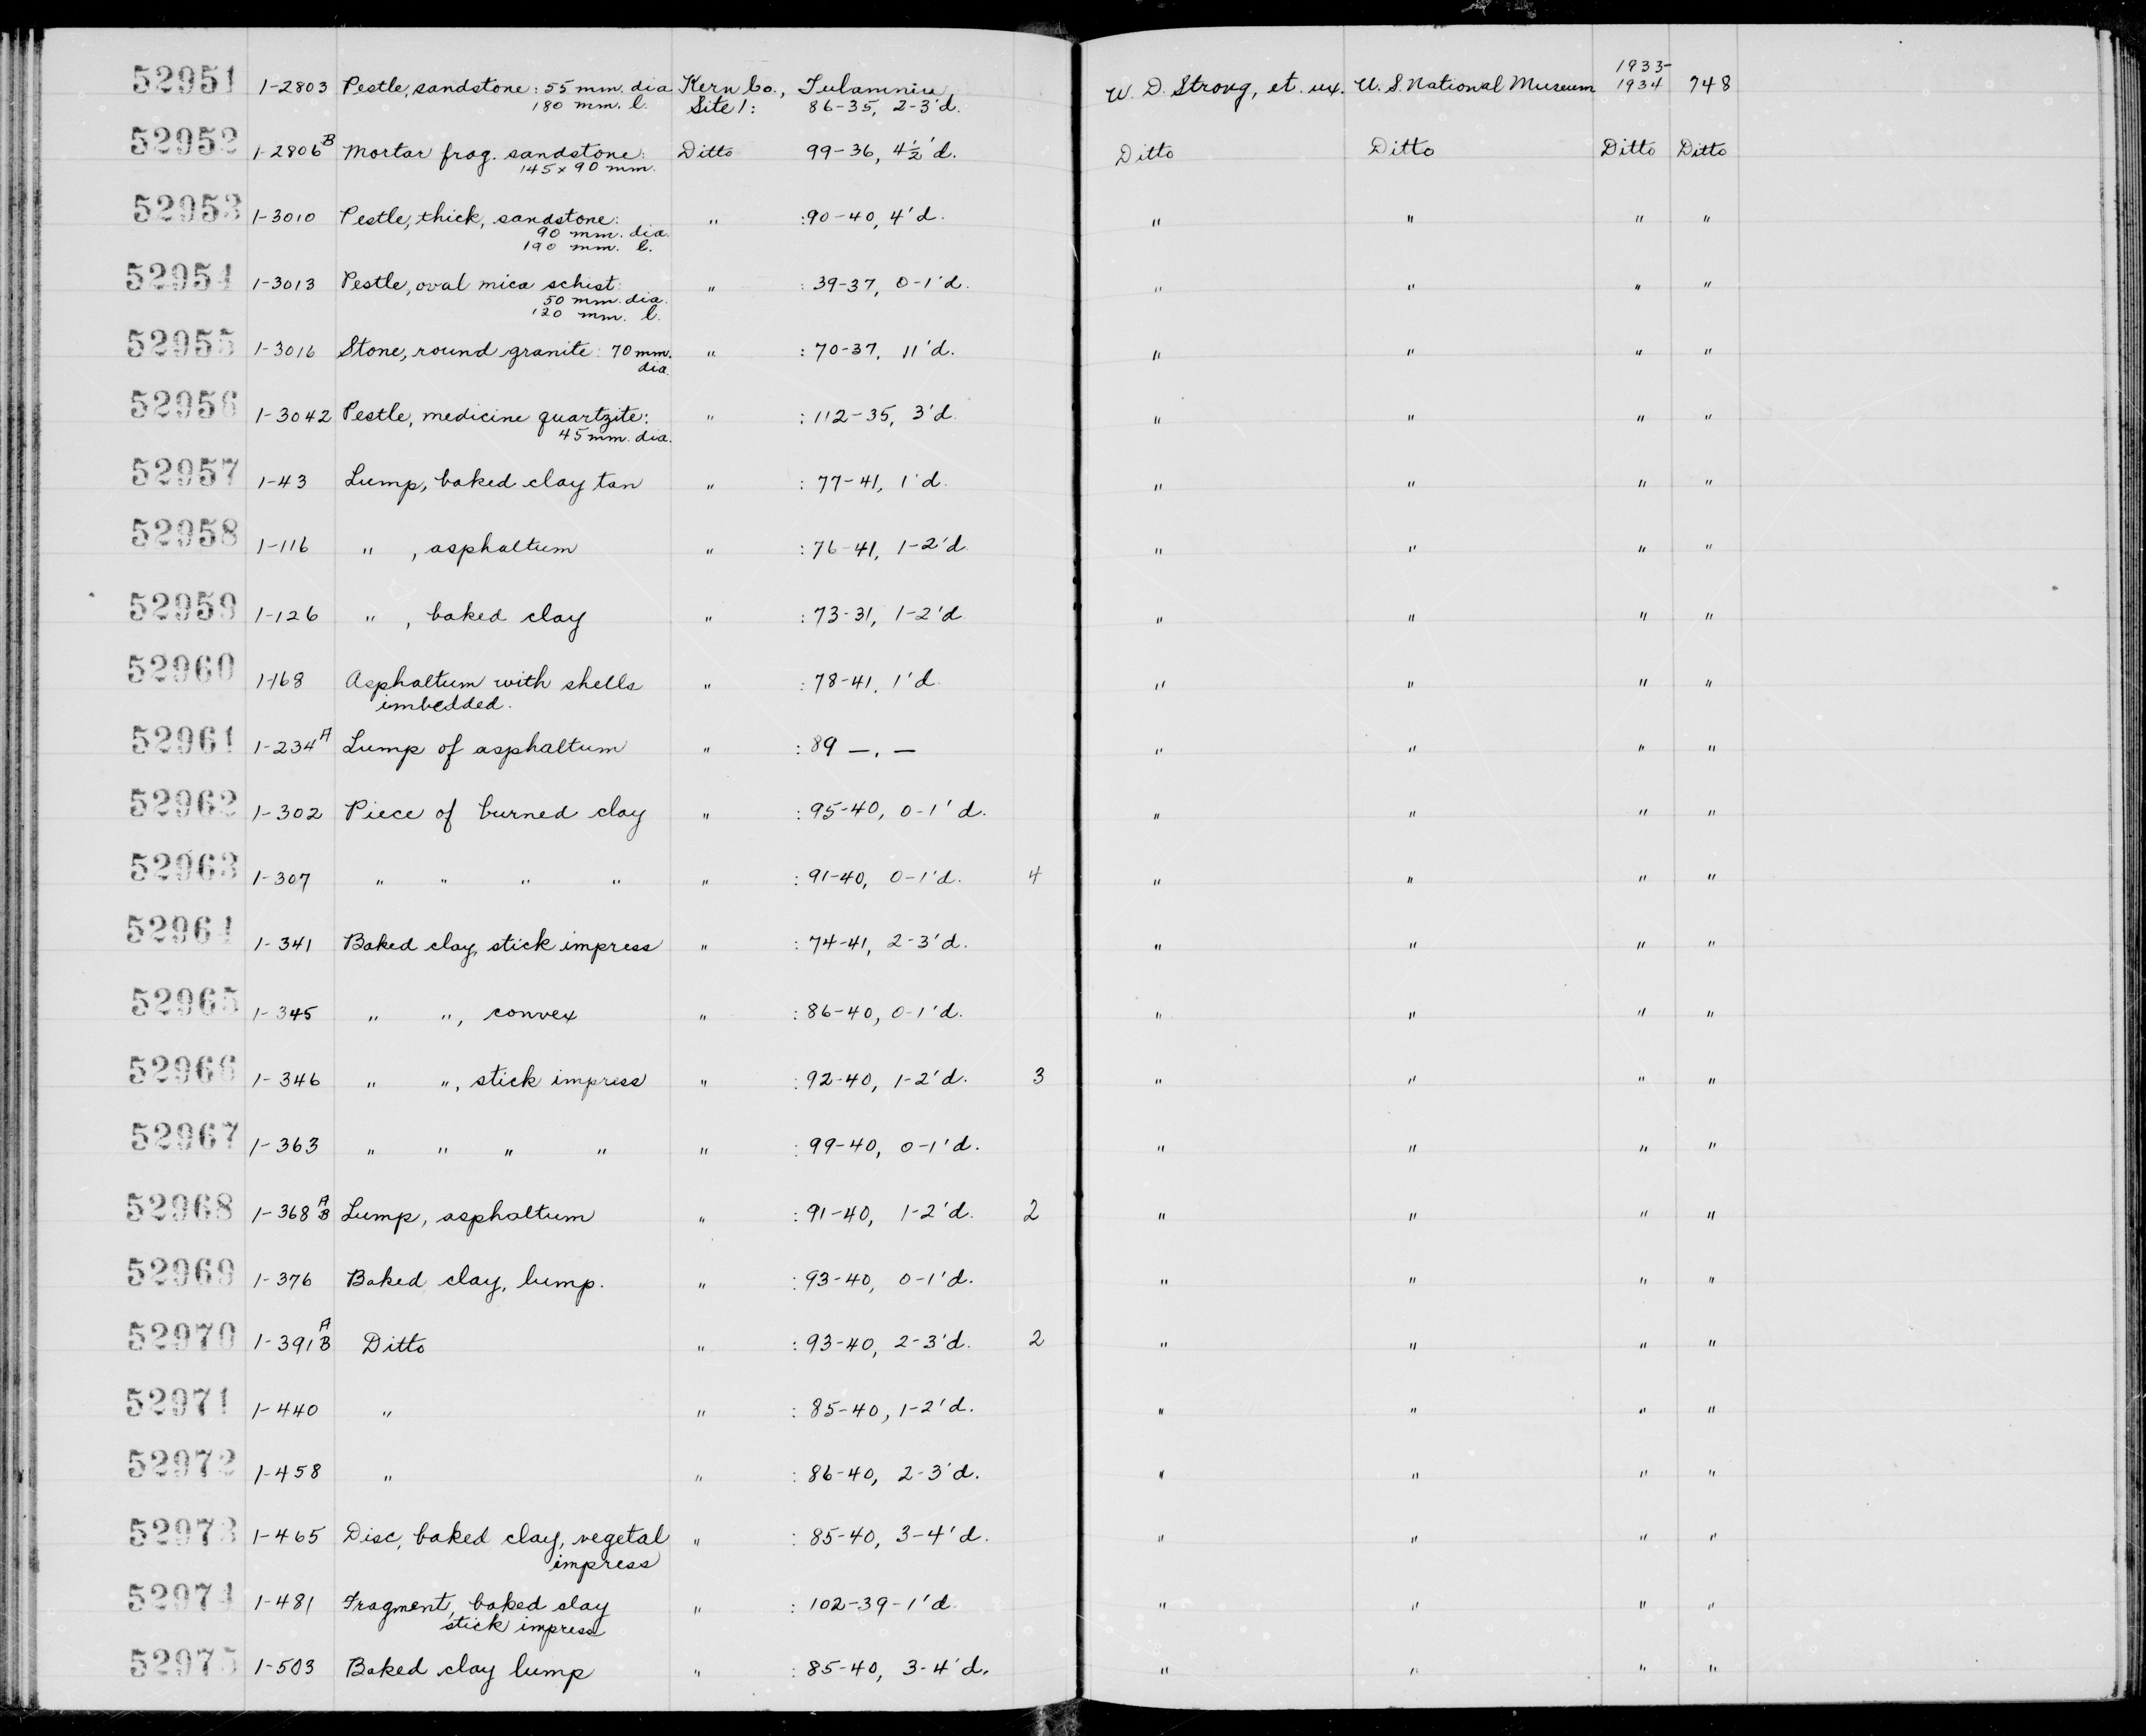 52951 1-2803 Pestle, sandstone: 55 mm. dia Kern Co., Tulamniu, W. D. Strong, et. ux. U. S. National Museum 1933- 1934 748
180 mm. l. Site 1: 86-35, 2-3'd.
52952 1-2806B Mortar frag. sandstone: Ditto 99-36, 4½'d. Ditto Ditto Ditto Ditto
145 x 90 mm.
52953 1-3010 Pestle, thick, sandstone: " :90-40, 4'd. " " " "
90 mm. dia.
190 mm. l.
52954 1-3013 Pestle, oval mica schist: " : 39-37, 0-1'd. " " " "
50 mm. dia.
120 mm. l.
52955 1-3016 Stone, round granite: 70 mm. " : 70-37, 11'd. " " " "
dia.
52956 1-3042 Pestle, medicine quartzite: " : 112-35, 3'd. " " " "
45 mm. dia.
52957 1-43 Lump, baked clay tan " : 77-41, 1'd. " " " "
52958 1-116 " , asphaltum " : 76-41, 1-2'd. " " " "
52959 1-126 " , baked clay " : 73-31, 1-2'd. " " " "
52960 1-168 Asphaltum with shells " : 78-41, 1'd. " " " "
imbedded.
52961 1-234A Lump of asphaltum " : 89 —, — " " " "
52962 1-302 Piece of burned clay " : 95-40, 0-1'd. " " " "
52963 1-307 " " " " " : 91-40, 0-1'd. 4 " " " "
52964 1-341 Baked clay, stick impress " : 74-41, 2-3'd. " " " "
52965 1-345 " ", convex " : 86-40, 0-1'd. " " " "
52966 1-346 " ", stick impress " : 92-40, 1-2'd. 3 " " " "
52967 1-363 " " " " " : 99-40, 0-1'd. " " " "
52968 1-368 A B Lump, asphaltum " : 91-40, 1-2'd. 2 " " " "
52969 1-376 Baked clay, lump. " : 93-40, 0-1'd. " " " "
52970 1-391 A B Ditto " : 93-40, 2-3'd. 2 " " " "
52971 1-440 " " : 85-40, 1-2'd. " " " "
52972 1-458 " " : 86-40, 2-3'd. " " " "
52973 1-465 Disc, baked clay, vegetal " : 85-40, 3-4'd. " " " "
impress
52974 1-481 Fragment, baked clay " : 102-39-1'd. " " " "
stick impress
52975 1-503 Baked clay lump " : 85-40, 3-4'd. " " " "